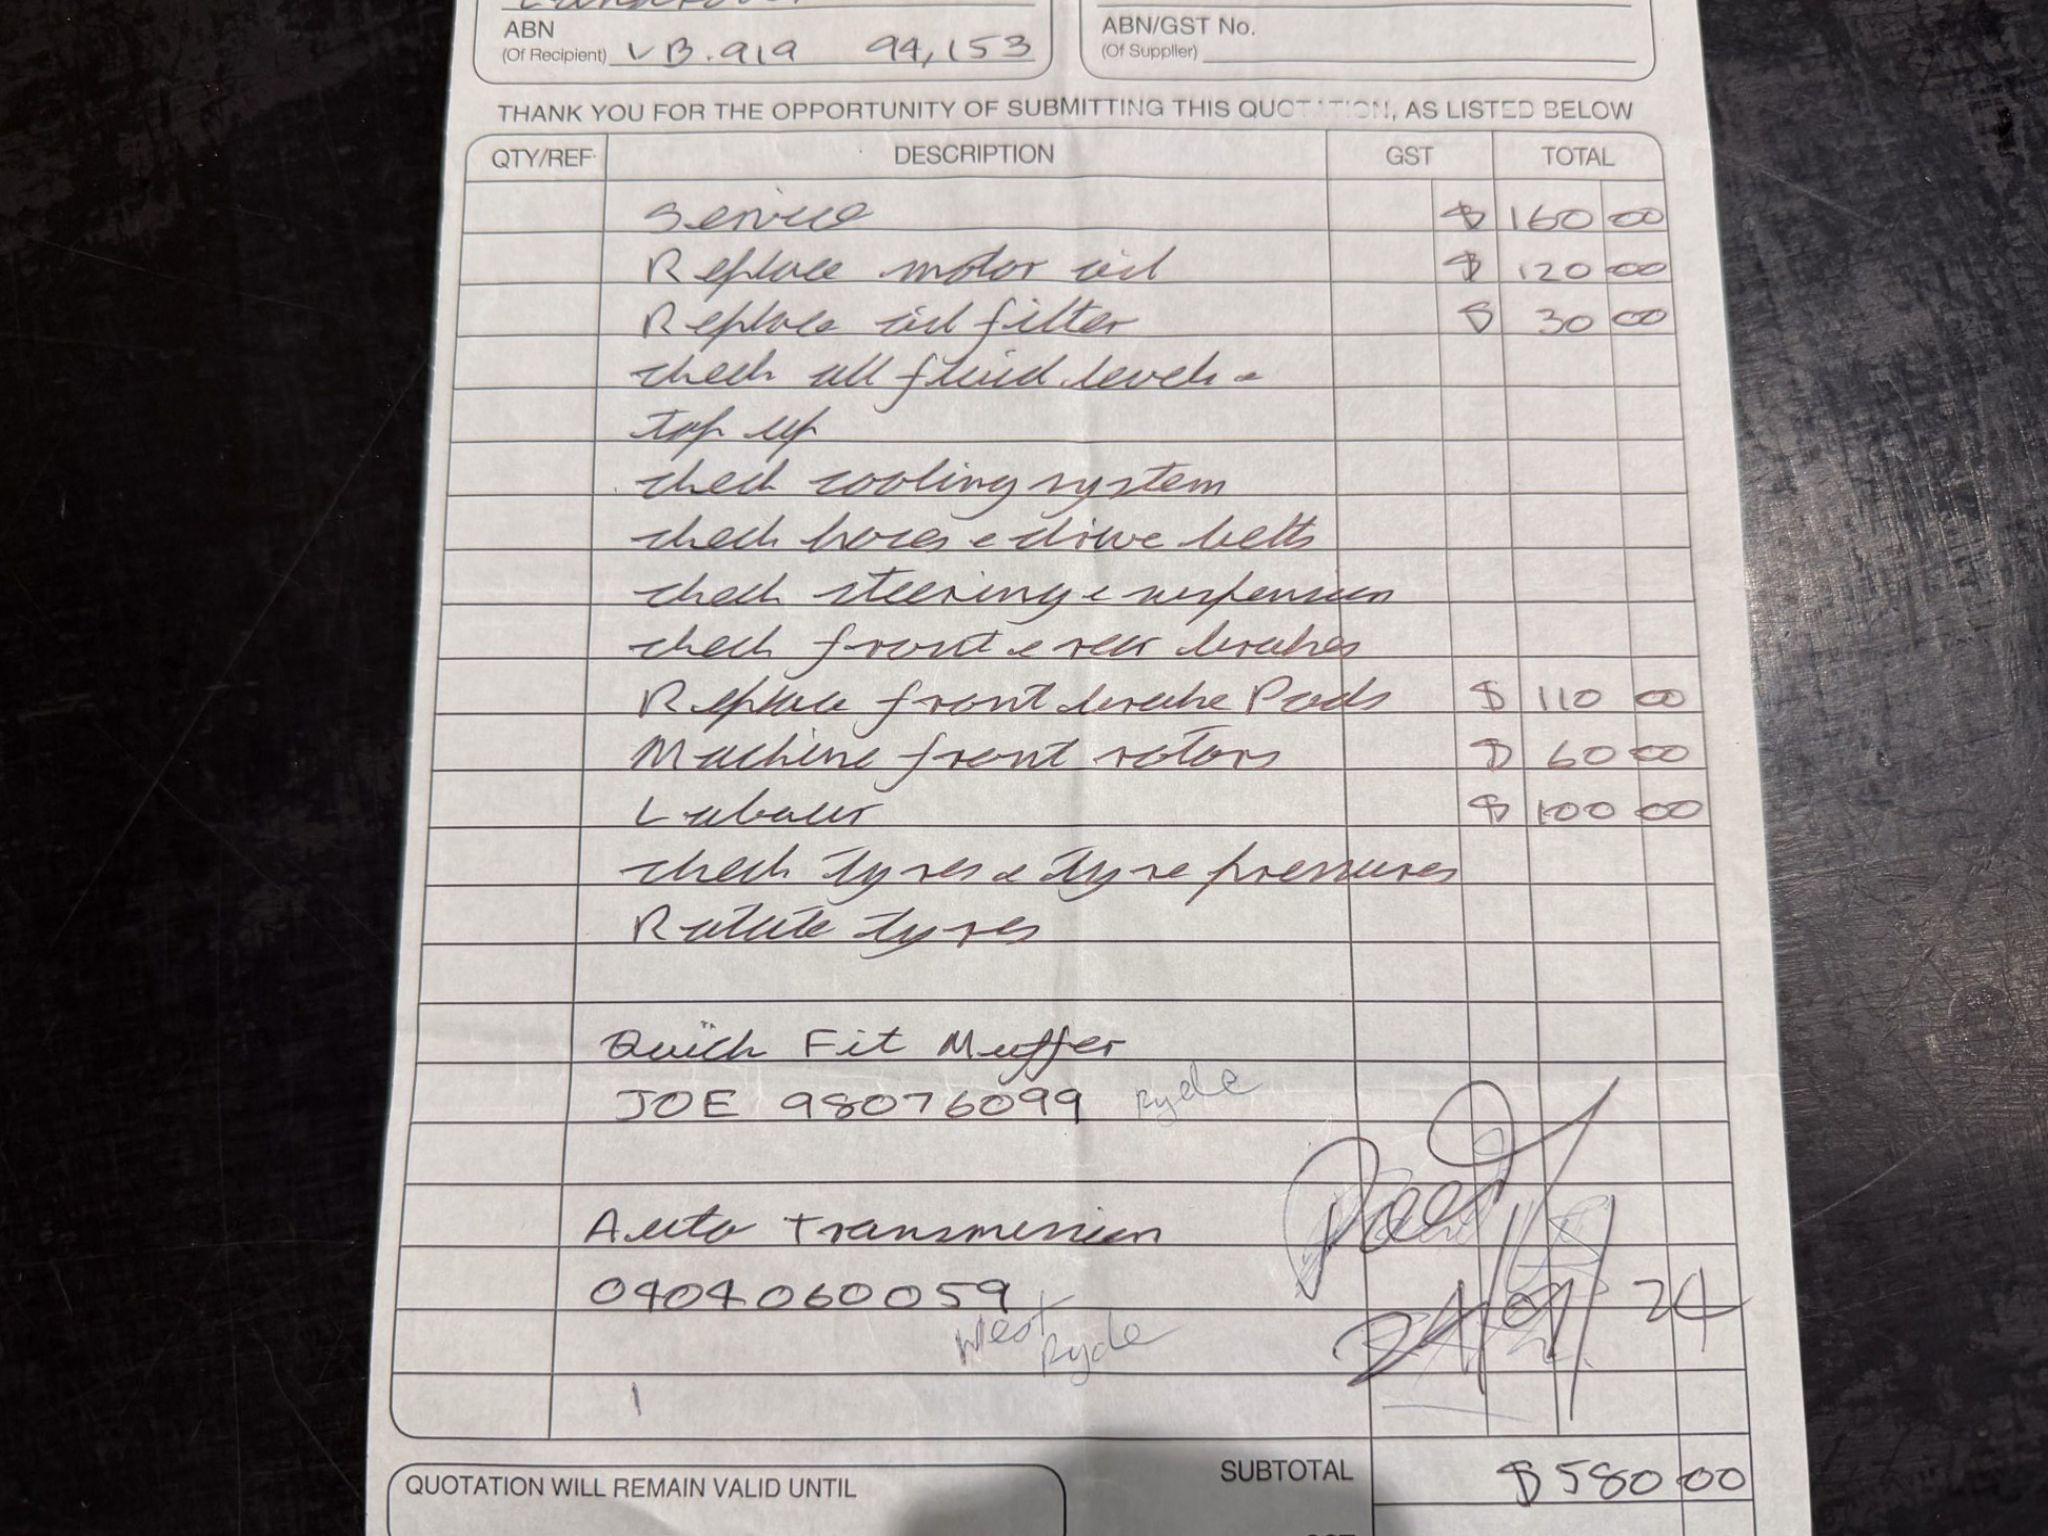 Landrover
ABN
(Of Recipient) VB.919 94,153
ABN/GST No.
(Of Supplier)
THANK YOU FOR THE OPPORTUNITY OF SUBMITTING THIS QUOTATION, AS LISTED BELOW
QTY/REF DESCRIPTION GST TOTAL
Service $ 160 00
Replace motor oil $ 120 00
Replace oil filter $ 30 00
check all fluid levels &
top up
check cooling system
check hoses & drive belts
check steering & suspension
check front & rear brakes
Replace front brake Pads $ 110 00
Machine front rotors $ 60 00
Labour $ 100 00
check tyres & tyre pressures
Rotate tyres
Quich Fit Muffer
JOE 98076099 Ryde
Auto Transmission
0404060059
West
Ryde
24
SUBTOTAL $ 580 00
QUOTATION WILL REMAIN VALID UNTIL